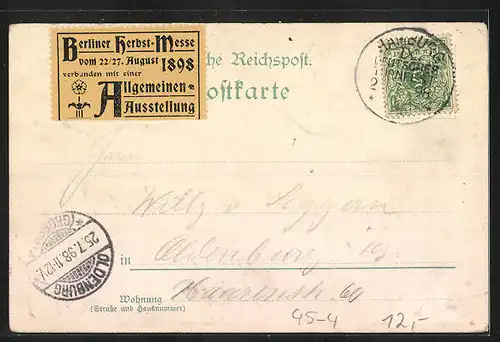 Berliner Herbst-Messe
vom 22/27. August 1898
verbunden mit einer
Allgemeinen
Ausstellung
che Reichspost.
ostkarte
HAMBURG
Herrn
Willy v. Seggern
in Oldenburg i/G.
Haarenstr 60
Wohnung
(Straße und Hausnummer)
OLDENBURG
25.7.98.11-12V.
45-4 12,-